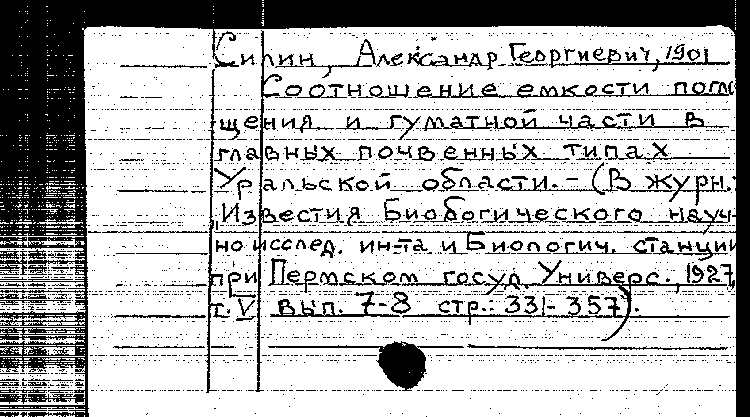 Силин, Александр Георгиевич, 1901
Соотношение емкости погло
щения и гуматной части в
главных почвенных типах
Уральской области. - (В журн.:
"Известия Биологического науч-
но исслед. ин-та и Биологич. станции
при Пермском госуд. Универс., 1927,
т. V вып. 7-8 стр.: 331-357).